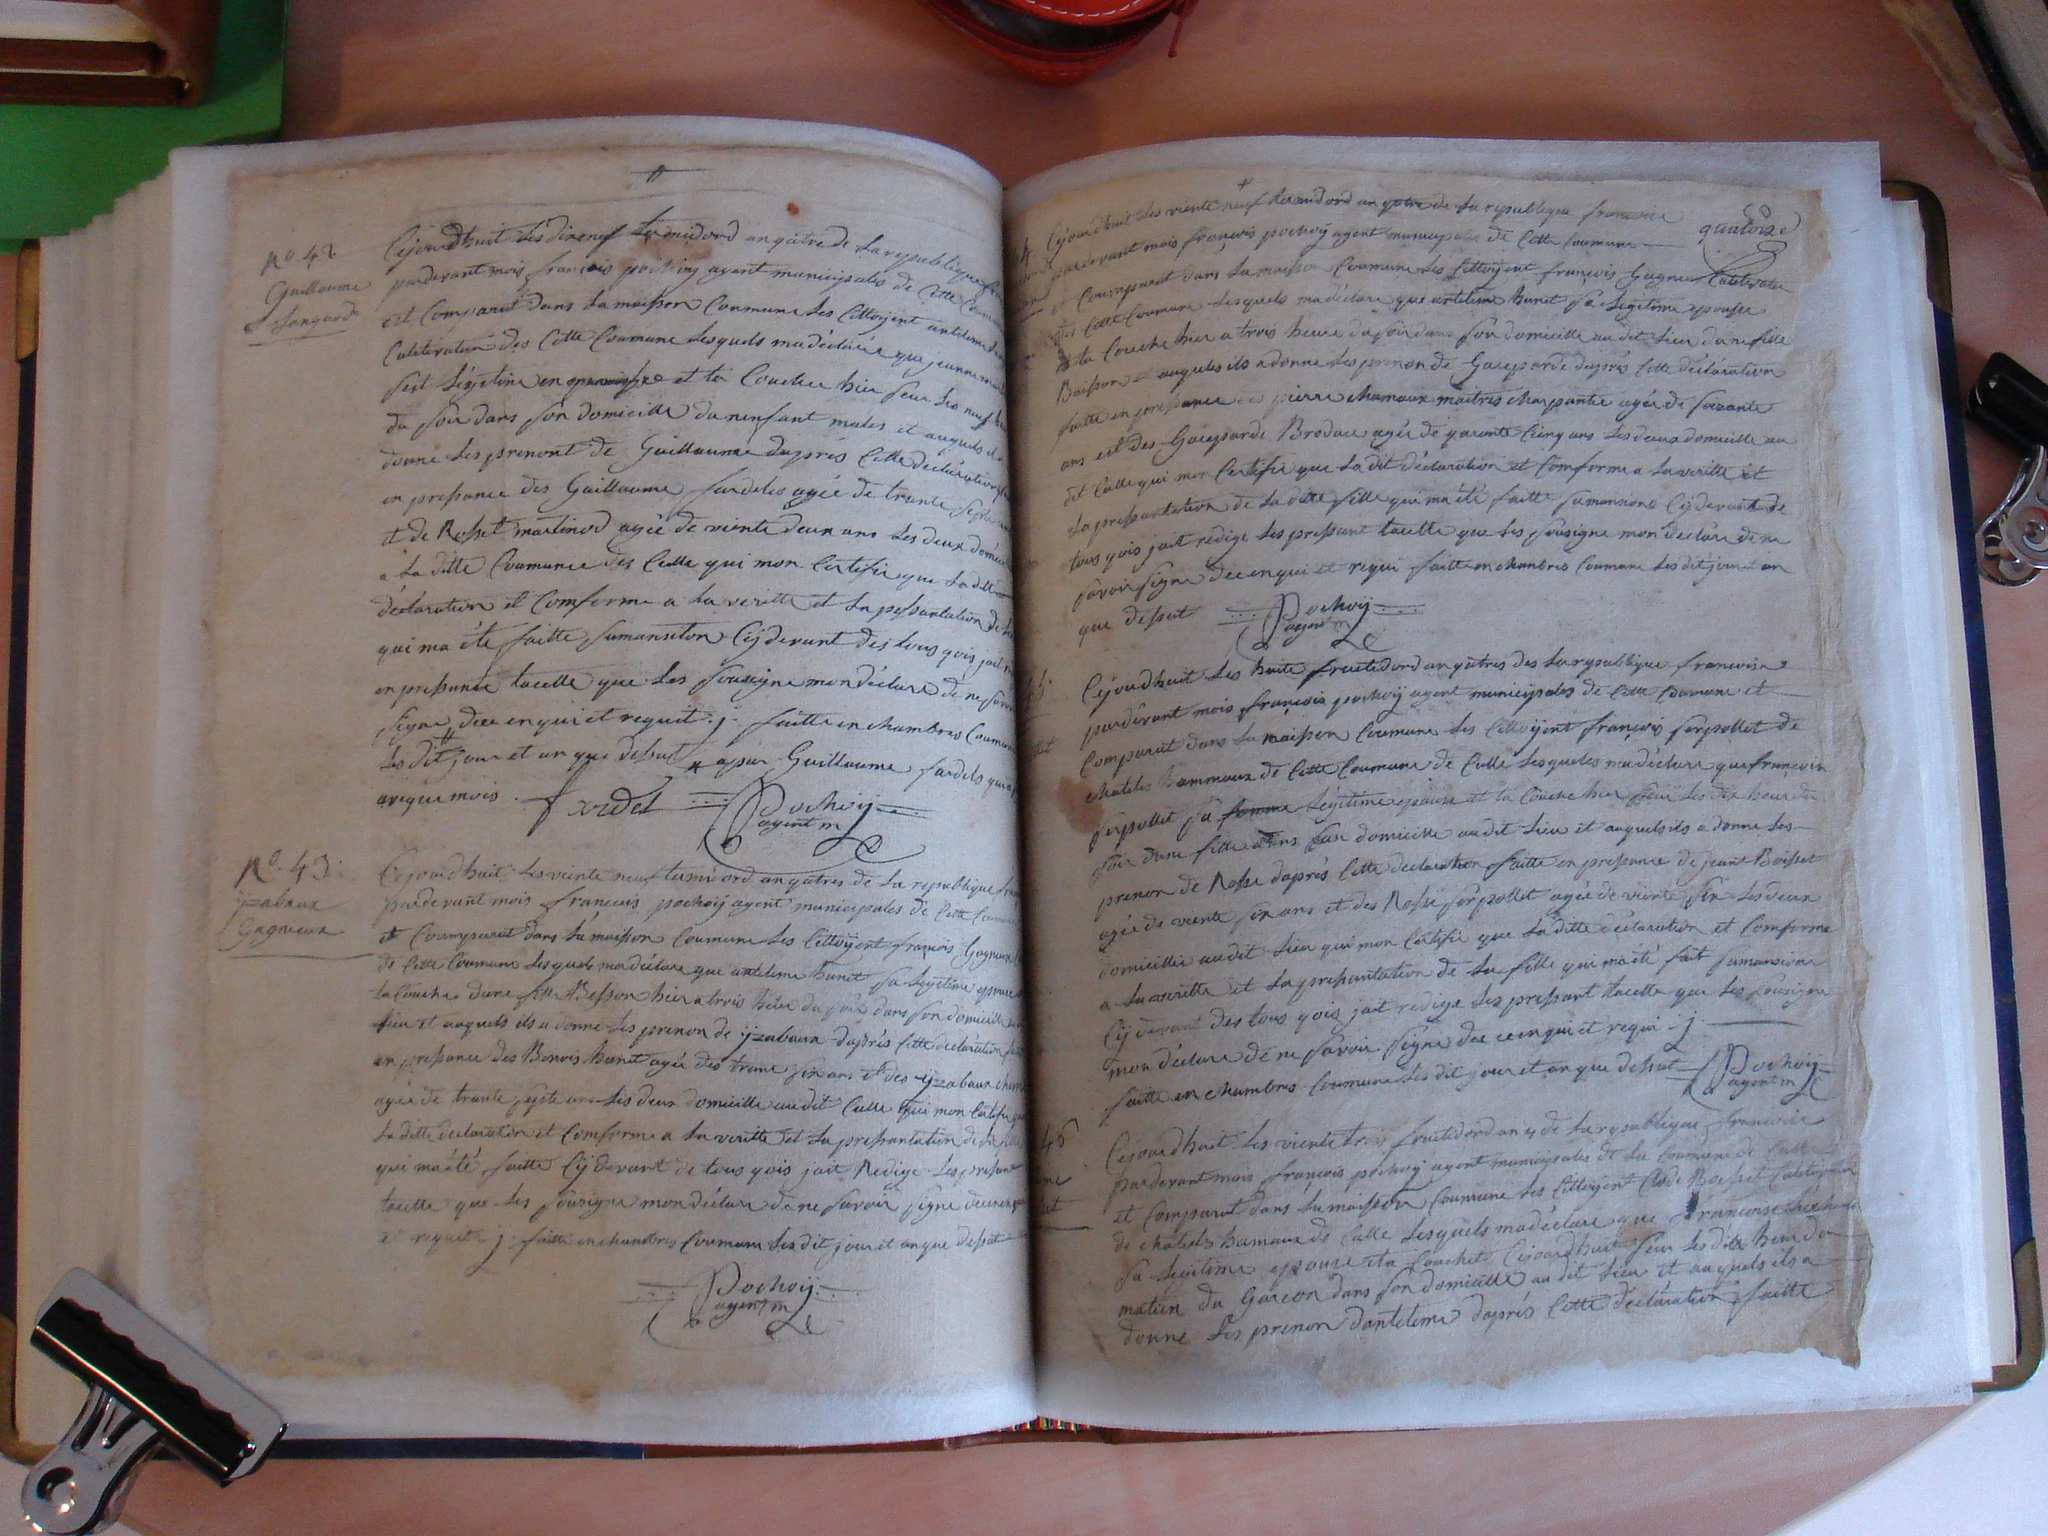 No. 42
Guillaume
Cejourdhuit les dixneuf termidord an quatre de la republique
pardevant mois françois pochoy agent municipales de cette
est Comparut dans la maisson Commune les Cittoyent antelme
Cultivateur des Cette Coumune Lesquels ma déclaré que jeanne
sest légitime et la Couchee hier seur les neuf
du soir dans son domicille du nenfant males et auquels il
donne les prenont de Guillaume daprés Cette declaration
en pressance des Guillaume fardeles agée de trante septe
et de Rosset martinod agée de viente deux ans les deux
a la ditte Coumune des Culle qui mon Certifie que la ditte
déclaration et Comforme a la veritte et la pressantation de
qui ma été faitte sumansion Cijdevant des tous qois jait
en pressance tacette que les sousigne mon déclare de ne
signe dee enqui et requit .j. faitte en chambres Coumune
les dit jour et an que dessut apar Guillaume fardels qui
aveque mois. fardel Pochoij
agent m
No. 43.
yzabaux
Gagneux
Cejourdhuit les viente neuf termidord an quatres de la republique
pardevant mois francois pochoij agent municipales de Cette
et Coumparut dans la maisson Coumune les Cittoijent françois Gagneux
de Cette Coumune Lesquels ma déclare que antelme hunet sa legitime epouse
la Couchee dune fille Besson hier a trois heure du soir dans son domicille
lieu et auquels ils a donne les prenon de yzabaux daprés Cette declaration
en pressance des Benois hunet agée des trante six ans et des yzabaux
agée de trante septe ans les deux domicille audit Culle qui mon Certifie
la ditte declaration et Comforme a la veritte et la pressantation de la
qui ma été faitte Cijdevant de tous qois jait Redige les pressant
tacette que les sousigne mon déclare de ne savoir signe
et requit j. faitte en chambres Coumune les dit jour et an que dessut
Pochoij
agent m
quatorze
Cejourdhuit les viente neuf termidord an qutre de la republique francoise
pardevant mois françois pochoij agent municipales de Cette Coumune
et Coumparut dans la maisson Coumune les Cittoijent françois Gagneux Cultivateur
des Cette Coumune Lesquels ma déclare que antelme hunet sa legitime epousee
et la Couche hier a trois heure du soir dans son domicille au dit lieu dune fille
Baisson et auqueles ils a donne les prenon de Gaspardе daprés Cette déclaration
faitte en pressance des pierre chamaux maitres charpantie agée de soixante
ans est des Gaspardе Brodaie agée de qarante Cienq ans les deux domicille au
dit Culle qui mon Certifie que la dit déclaration et Comforme a la veritte et
la pressantation de la ditte fille qui ma été faitte sumansion Cijdevant de
tous qois jait redige les pressant tacette que les sousigne mon declare de ne
savoir signe dee enqui et requi faitte en chambres Coumune les dit jour et an
que dessut Pochoij
agent m
Cejourdhuit les huite fruitidord an quatres des la republique francoise
pardevant mois françois pochoij agent municipales de Cette Coumune et
Comparut dans la maisson Coumune les Cittoijent françois serpollet de
chateles hammaux de Cette Coumune de Culle Lesqueles ma déclare que françoise
serpollet sa femme légitime epouse et la Couche hier seur les dix heur du
soir dune fille dans son domicille au dit lieu et auquels ils a donne les
prenon de Rosse daprés Cette declaration faitte en pressance de jean Boisset
agée de viente six ans et des Rosse serpollet agée de viente six les deux
domicillie au dit lieu qui mon Certifie que la ditte declaration et Comforme
a la veritte et la pressantation de la fille qui ma été fait sumansion
Cijdevant des tous qois jait redige les pressant tacette que les sousigne
mon déclare de ne savoir signe dee ceenqui et requi .j.
faitte en chambres Coumune les dit jour et an que dessut Pochoij
agent m
46
Cejourdhuit les viente trois fruitidord an 4 de la republique francoise
pardevant mois françois pochoij agent municipales de la Coumune de Culle
et Comparut dans la maisson Coumune les Cittoijent Clode Rosset Cultivateur
de chateles hamaux de Culle Lesquels ma déclare que francoise
sa legitime epouse et la Couchet Cejourdhuit seur les dix heur du
matien du Garcon dans son domicille au dit lieu et auquels ils a
donne les prenon dantelme daprés Cette declaration faitte